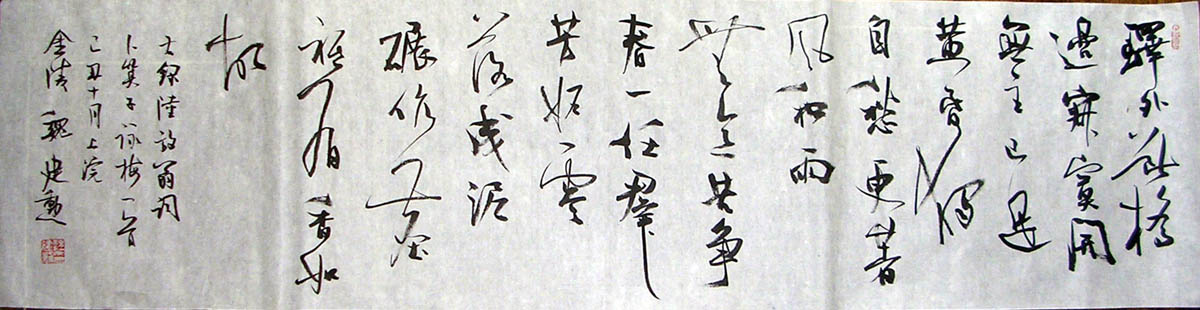 驛外斷橋
邊寂寞開
無主已是
黃昏獨
自愁更著
風和雨
無意苦爭
春一任羣
芳妒零
落成泥
碾作塵
祗有香如
故
錄陸放翁詞
卜算子詠梅一首
己丑十月上浣
金 魏